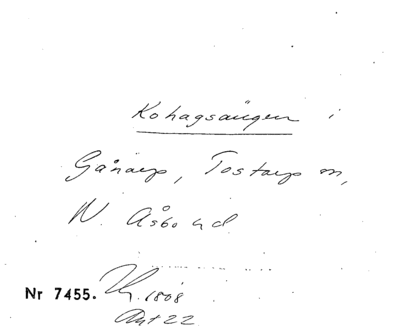 Kohagsängen i
Gånarp, Tostarp m,
N. Åsbo hd
Nr 7455. 1808
Akt 22